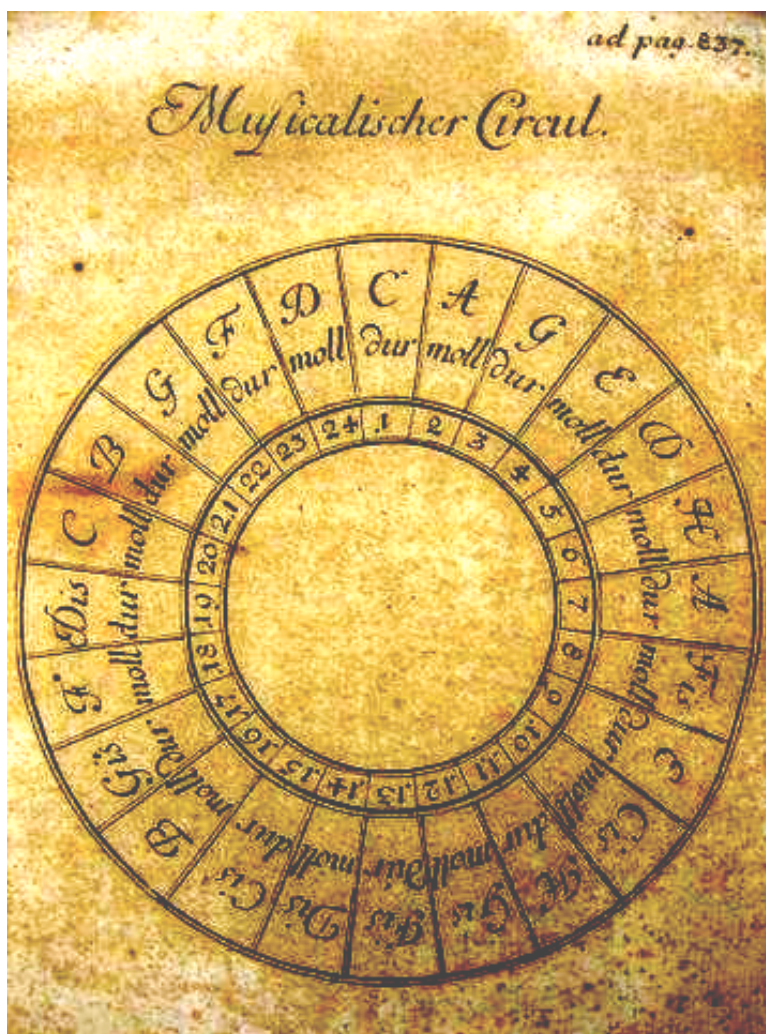 ad pag. 837.
Muſicalischer Circul.
C
dur
1
A
moll
2
G
dur
3
E
moll
4
D
dur
5
H
moll
6
A
dur
7
Fis
moll
8
E
dur
9
Cis
moll
10
H
dur
11
Gis
moll
12
Fis
dur
13
Dis
moll
14
Cis
dur
15
B
moll
16
Gis
dur
17
F
moll
18
Dis
dur
19
C
moll
20
B
dur
21
G
moll
22
F
dur
23
D
moll
24